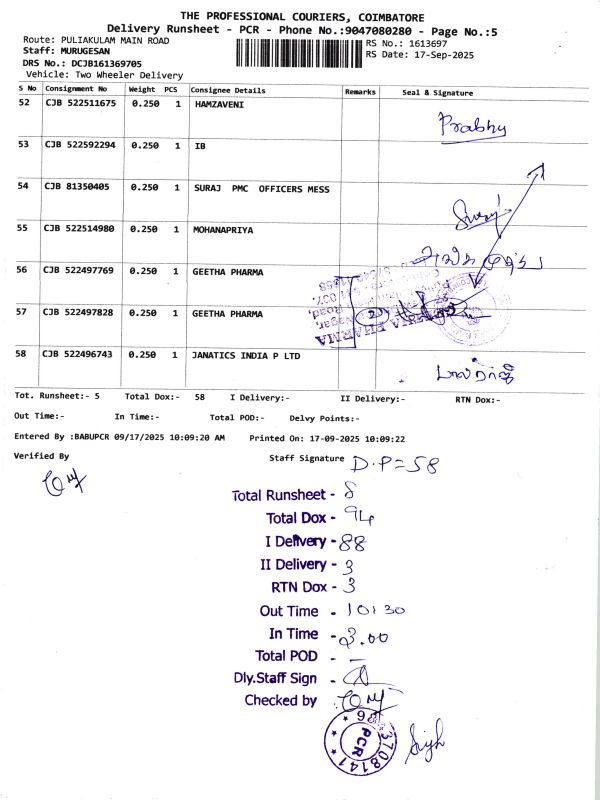 THE PROFESSIONAL COURIERS, COIMBATORE
Delivery Runsheet - PCR - Phone No.:9047080280 - Page No.:5
Route: PULIAKULAM MAIN ROAD
RS No.: 1613697
Staff: MURUGESAN
RS Date: 17-Sep-2025
DRS No.: DCJB161369705
Vehicle: Two Wheeler Delivery
S No Consignment No Weight PCS Consignee Details Remarks Seal & Signature
52 CJB 522511675 0.250 1 HAMZAVENI
Prabhu
53 CJB 522592294 0.250 1 IB
54 CJB 81350405 0.250 1 SURAJ PMC OFFICERS MESS
Suraj
55 CJB 522514980 0.250 1 MOHANAPRIYA
56 CJB 522497769 0.250 1 GEETHA PHARMA
57 CJB 522497828 0.250 1 GEETHA PHARMA
58 CJB 522496743 0.250 1 JANATICS INDIA P LTD
Tot. Runsheet:- 5 Total Dox:- 58 I Delivery:- II Delivery:- RTN Dox:-
Out Time:- In Time:- Total POD:- Delvy Points:-
Entered By :BABUPCR 09/17/2025 10:09:20 AM Printed On: 17-09-2025 10:09:22
Verified By Staff Signature D.P=58
Total Runsheet - 8
Total Dox - 94
I Delivery - 88
II Delivery - 3
RTN Dox - 3
Out Time - 10:30
In Time - 3.00
Total POD - —
Dly.Staff Sign -
Checked by
PCR